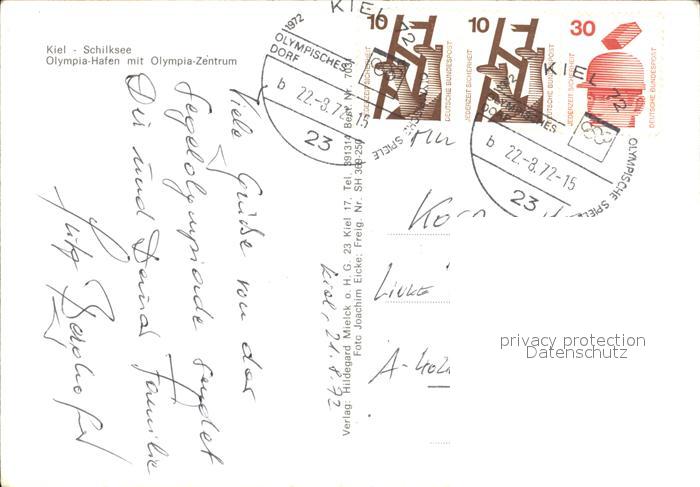 Kiel - Schilksee
Olympia-Hafen mit Olympia-Zentrum
Viele Grüße von der
Segelolympiade sendet
Dir und Deiner Familie
Fritz
Kiel, 21.8.72
Verlag: Hildegard Mielck o. H. G. 23 Kiel 17. Tel. 391314 Best. Nr. 703
Foto Joachim Eicke: Freig. Nr. SH 369-250
10
JEDERZEIT SICHERHEIT
DEUTSCHE BUNDESPOST
10
JEDERZEIT SICHERHEIT
DEUTSCHE BUNDESPOST
30
JEDERZEIT SICHERHEIT
DEUTSCHE BUNDESPOST
KIEL 72
1972
OLYMPISCHES
DORF
b
22.-8.72-15
23
OLYMPISCHE SPIELE
KIEL 72
1972
OLYMPISCHES
DORF
b
22.-8.72-15
23
OLYMPISCHE SPIELE
Linke
privacy protection
Datenschutz